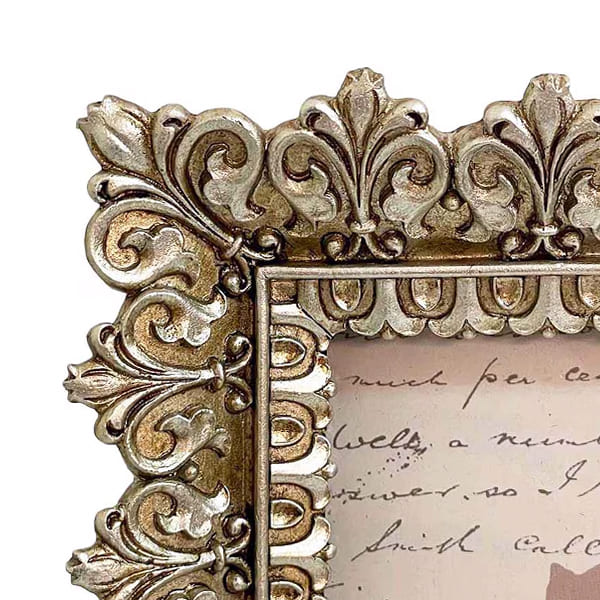 much per ce
Well, a numb
swer, so - I
Smith Call